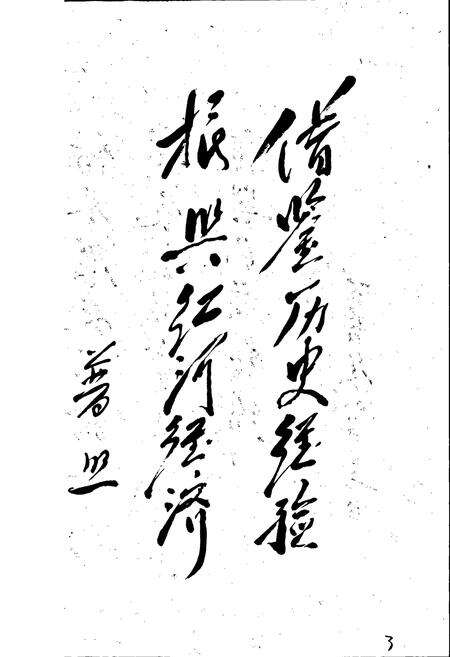 借鉴历史经验
振兴红河经济
普照
3